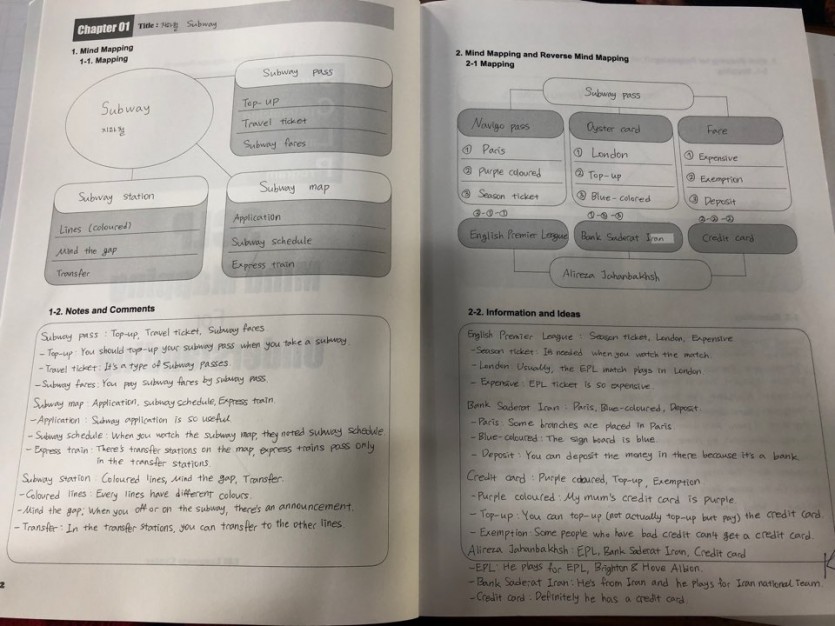 Chapter 01 Title : 지하철 Subway
1. Mind Mapping
1-1. Mapping
Subway
지하철
Subway pass
Top-up
Travel ticket
Subway fares
Subway station
Lines (coloured)
Mind the gap
Transfer
Subway map
Application
Subway schedule
Express train
1-2. Notes and Comments
Subway pass : Top-up, Travel ticket, Subway fares.
- Top-up : You should top-up your subway pass when you take a subway.
- Travel ticket : It's a type of Subway passes.
- Subway fares : You pay subway fares by subway pass.
Subway map : Application, subway schedule, Express train
- Application : Subway application is so useful.
- Subway schedule : When you watch the subway map, they noted subway schedule.
- Express train : There's transfer stations on the map, express trains pass only
in the transfer stations.
Subway station : Coloured lines, Mind the gap, Transfer.
- Coloured lines : Every lines have different colours.
- Mind the gap : When you off or on the subway, there's an announcement.
- Transfer : In the transfer stations, you can transfer to the other lines.
2
2. Mind Mapping and Reverse Mind Mapping
2-1 Mapping
Subway pass
Navigo pass
① Paris
② Purple coloured
③ Season ticket
Oyster card
① London
② Top-up
③ Blue-colored
Fare
① Expensive
② Exemption
③ Deposit
③-①-①
①-③-③
②-②-②
English Premier League
Bank Saderat Iran
Credit card
Alireza Jahanbakhsh
2-2. Information and Ideas
English Premier League : Season ticket, London, Expensive
- Season ticket : In needed when you watch the match.
- London : Usually, the EPL match plays in London
- Expensive : EPL ticket is so expensive.
Bank Saderat Iran : Paris, Blue-coloured, Deposit.
- Paris : Some branches are placed in Paris
- Blue-coloured : The sign board is blue.
- Deposit : You can deposit the money in there because it's a bank.
Credit card : Purple coloured, Top-up, Exemption
- Purple coloured : My mum's credit card is purple.
- Top-up : You can top-up (not actually top-up but pay) the credit card.
- Exemption : Some people who have bad credit can't get a credit card.
Alireza Jahanbakhsh : EPL, Bank Saderat Iran, Credit card
- EPL : He plays for EPL, Brighton & Hove Albion.
- Bank Saderat Iran : He's from Iran and he plays for Iran national Team.
- Credit card : Definitely he has a credit card.